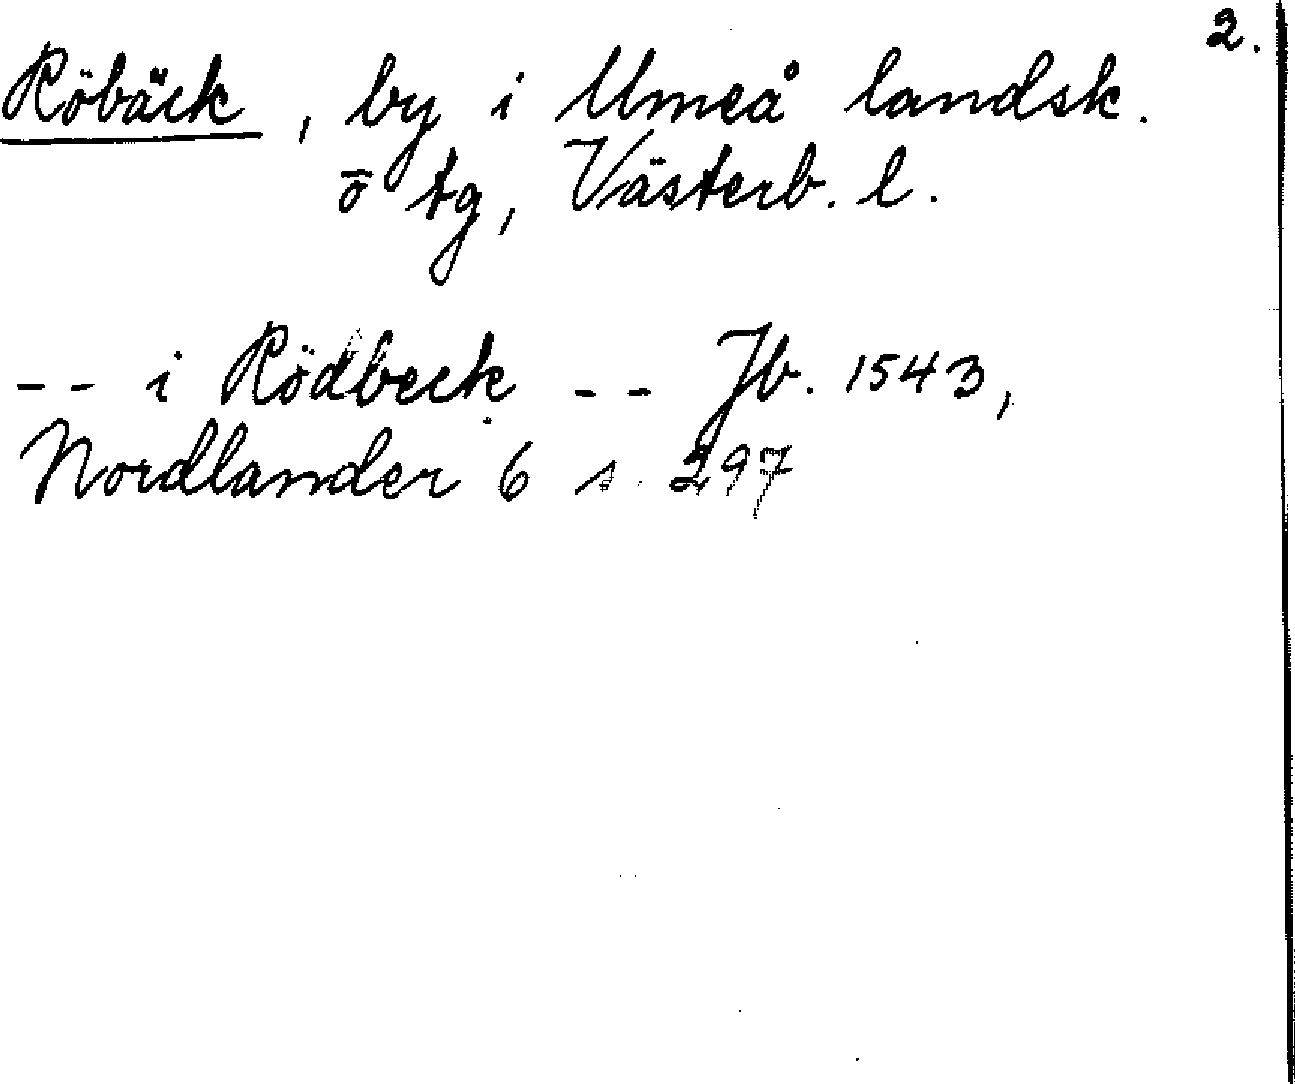 2.
Röbäck, by i Umeå landsk.
o tg, Västerb. l.
-- i Rödbeck -- Jb. 1543,
Nordlander 6 s. 297